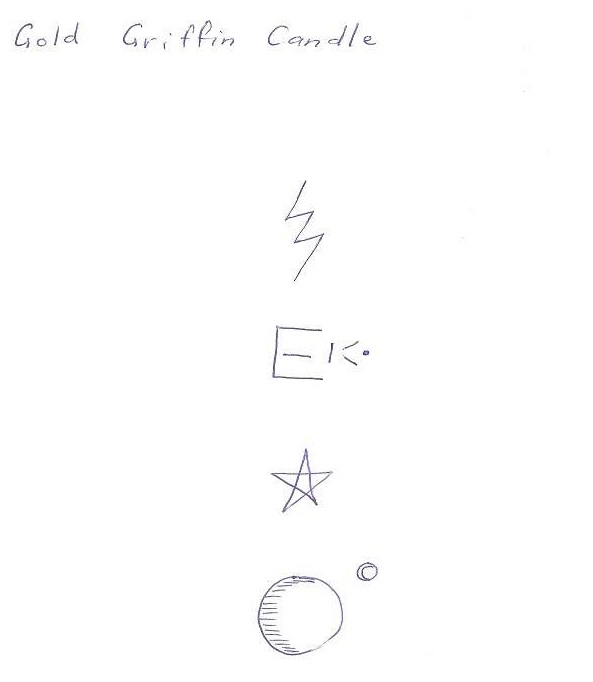 Gold Griffin Candle
EK.